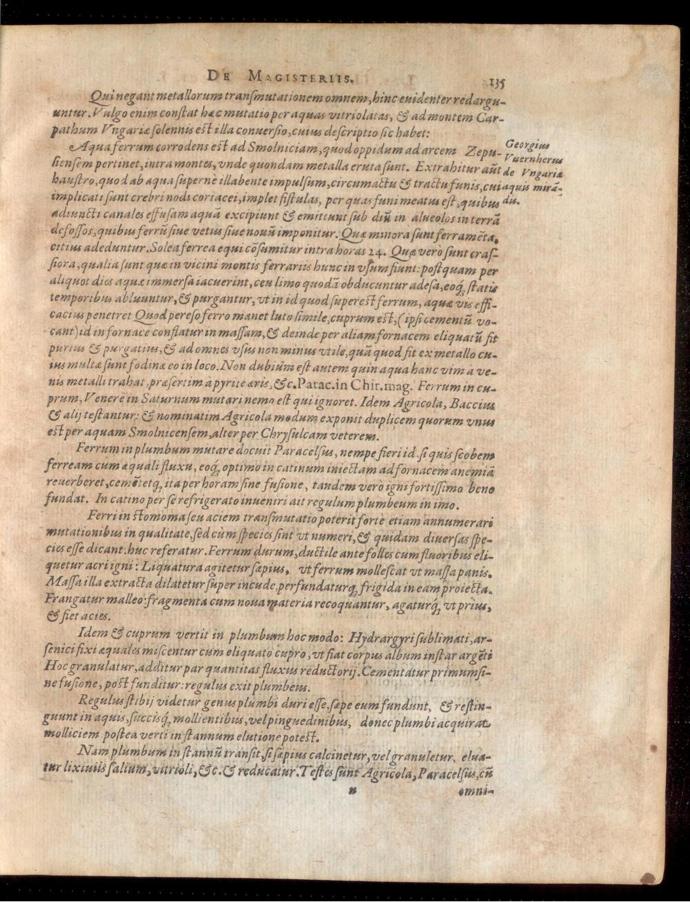 DE MAGISTERIIS. 135
Qui negant metallorum transmutationem omnem, hinc euidenter redargu-
untur. Vulgo enim constat hæc mutatio per aquas vitriolatas, & ad montem Car-
pathum Vngariæ solennis est illa conuersio, cuius descriptio sic habet:
Aqua ferrum corrodens est ad Smolniciam, quod oppidum ad arcem Zepu-
siensem pertinet, intra montes, vnde quondam metalla eruta sunt. Extrahitur aūt
haustro, quod ab aqua supernè illabente impulsum, circumactu & tractu funis, cui
implicati sunt crebri nodi coriacei, implet fistulas, per quas funi meatus est, quibus
adiuncti canales effusam aquā excipiunt & emittunt sub diū in alueolos in terrā
defossos, quibus ferrū siue vetus siue nouū imponitur. Quæ minora sunt ferramēta,
citius adeduntur. Solea ferrea equi cōsumitur intra horas 24. Quæ vero sunt cras-
siora, qualia sunt quæ in vicini montis ferrariis hunc in vsum fiunt: postquam per
aliquot dies aquæ immersa iacuerint, ceu limo quodā obducuntur adesa, eoq́, statis
temporibus abluuntur, & purgantur, vt in id quod superest ferrum, aquæ vis effi-
cacius penetret Quod pereso ferro manet luto simile, cuprum est, (ipsi cementū vo-
cant) id in fornace conflatur in massam, & deinde per aliam fornacem eliquatū fit
purius & purgatius, & ad omnes vsus non minus vtile, quā quod fit ex metallo cu-
ius multæ sunt fodinæ eo in loco. Non dubium est autem quin aqua hanc vim a ve-
nis metalli trahat, præsertim à pyrite æris, &c. Parac. in Chir. mag. Ferrum in cu-
prum, Venere in Saturnum mutari nemo est qui ignoret. Idem Agricola, Baccius
& alij testantur: & nominatim Agricola modum exponit duplicem quorum vnus
est per aquam Smolnicensem, alter per Chrysulcam veterem.
Georgius
Vuernherus
de Vngariæ
aquis mirā-
dis.
Ferrum in plumbum mutare docuit Paracelsus, nempe fieri id, si quis scobem
ferream cum æquali fluxu, eoq́, optimo in catinum iniectam ad fornacem anemiā
reuerberet, cemētetq́, ita per horam sine fusione, tandem vero igni fortissimo bene
fundat. In catino per se refrigerato inueniri ait regulum plumbeum in imo.
Ferri in stomoma seu aciem transmutatio poterit forte etiam annumerari
mutationibus in qualitate, sed cùm species sint vt numeri, & quidam diuersas spe-
cies esse dicant: huc referatur. Ferrum durum, ductile ante folles cum fluoribus eli-
quetur acri igni: Liquatura agitetur sæpius, vt ferrum mollescat vt massa panis.
Massa illa extracta dilatetur super incude, perfundaturq́, frigida in eam proiecta.
Frangatur malleo: fragmenta cum noua materia recoquantur, agaturq́, vt prius,
& fiet acies.
Idem & cuprum vertit in plumbum hoc modo: Hydrargyri sublimati, ar-
senici fixi æquales miscentur cum eliquato cupro, vt fiat corpus album instar argēti
Hoc granulatur, additur par quantitas fluxus reductorij. Cementatur primum si-
ne fusione, post funditur: regulus exit plumbeus.
Regulus stibij videtur genus plumbi duri esse, sæpe eum fundunt, & restin-
guunt in aquis, succisq́, mollientibus, vel pinguedinibus, donec plumbi acquirat
molliciem postea verti in stannum elutione potest.
Nam plumbum in stannū transit, si sæpius calcinetur, vel granuletur, elua-
tur lixiuiis salium, vitrioli, &c. & reducatur. Testes sunt Agricola, Paracelsus, cū
n omni-